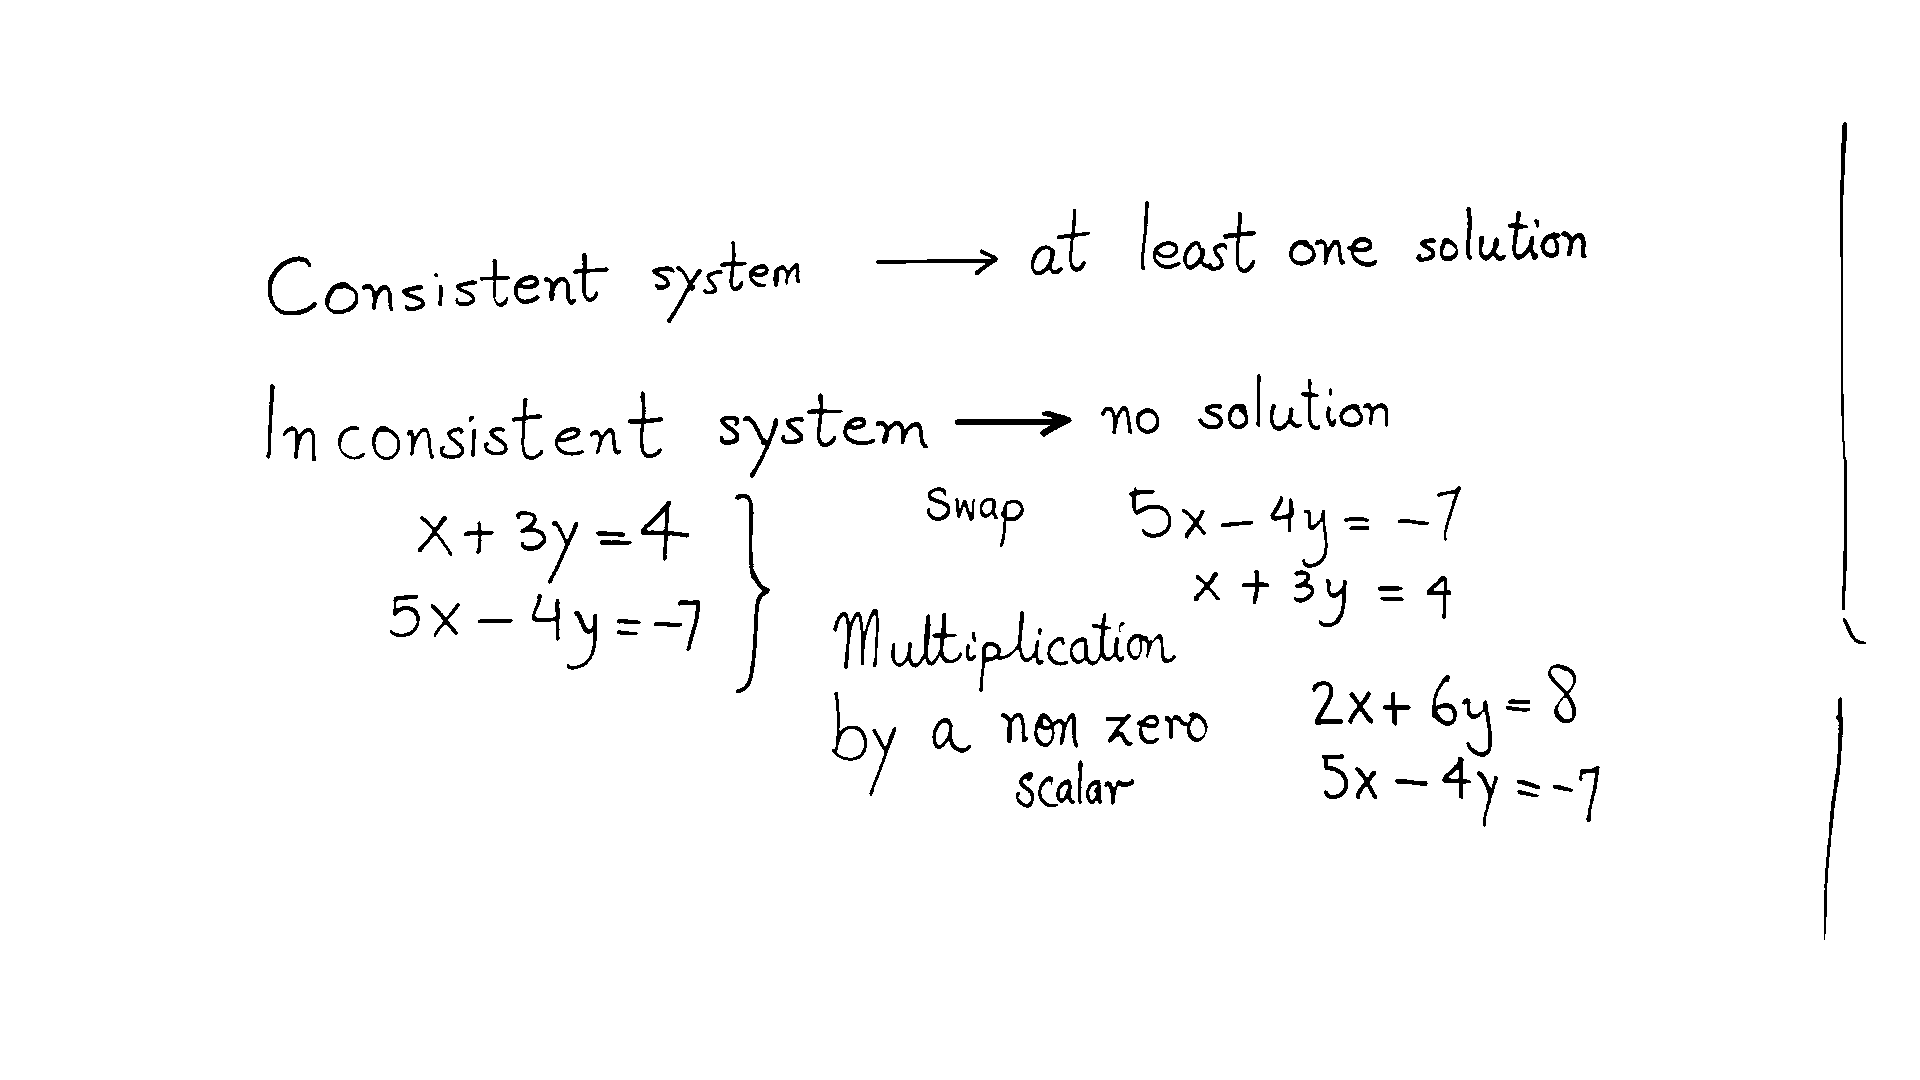 Consistent system → at least one solution
Inconsistent system → no solution
x + 3y = 4
5x - 4y = -7
Swap
5x - 4y = -7
x + 3y = 4
Multiplication
by a non zero
scalar
2x + 6y = 8
5x - 4y = -7